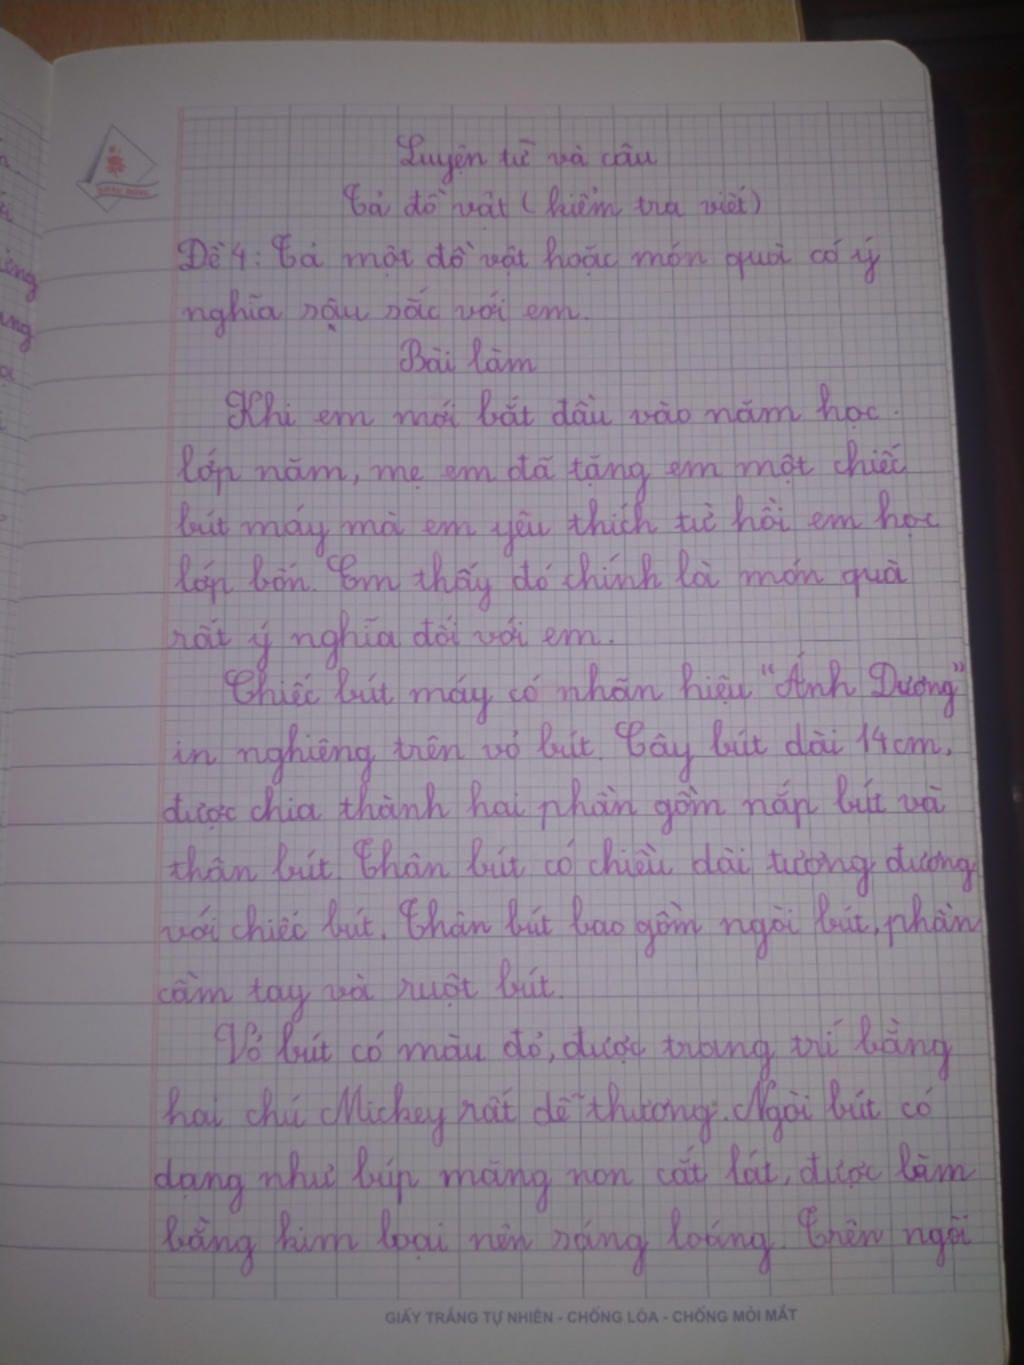 Luyện từ và câu
Tả đồ vật (kiểm tra viết)
Đề 4: Tả một đồ vật hoặc món quà có ý
nghĩa sâu sắc với em.
Bài làm
Khi em mới bắt đầu vào năm học
lớp năm, mẹ em đã tặng em một chiếc
bút máy mà em yêu thích từ hồi em học
lớp bốn. Em thấy đó chính là món quà
rất ý nghĩa đối với em.
Chiếc bút máy có nhãn hiệu "Ánh Dương"
in nghiêng trên vỏ bút. Cây bút dài 14cm,
được chia thành hai phần gồm nắp bút và
thân bút. Thân bút có chiều dài tương đương
với chiếc bút. Thân bút bao gồm ngòi bút, phần
cầm tay và ruột bút.
Vỏ bút có màu đỏ, được trang trí bằng
hai chú Mickey rất dễ thương. Ngòi bút có
dạng như búp măng non cắt lát, được làm
bằng kim loại nên sáng loáng. Trên ngòi
GIẤY TRẮNG TỰ NHIÊN - CHỐNG LÓA - CHỐNG MỎI MẮT